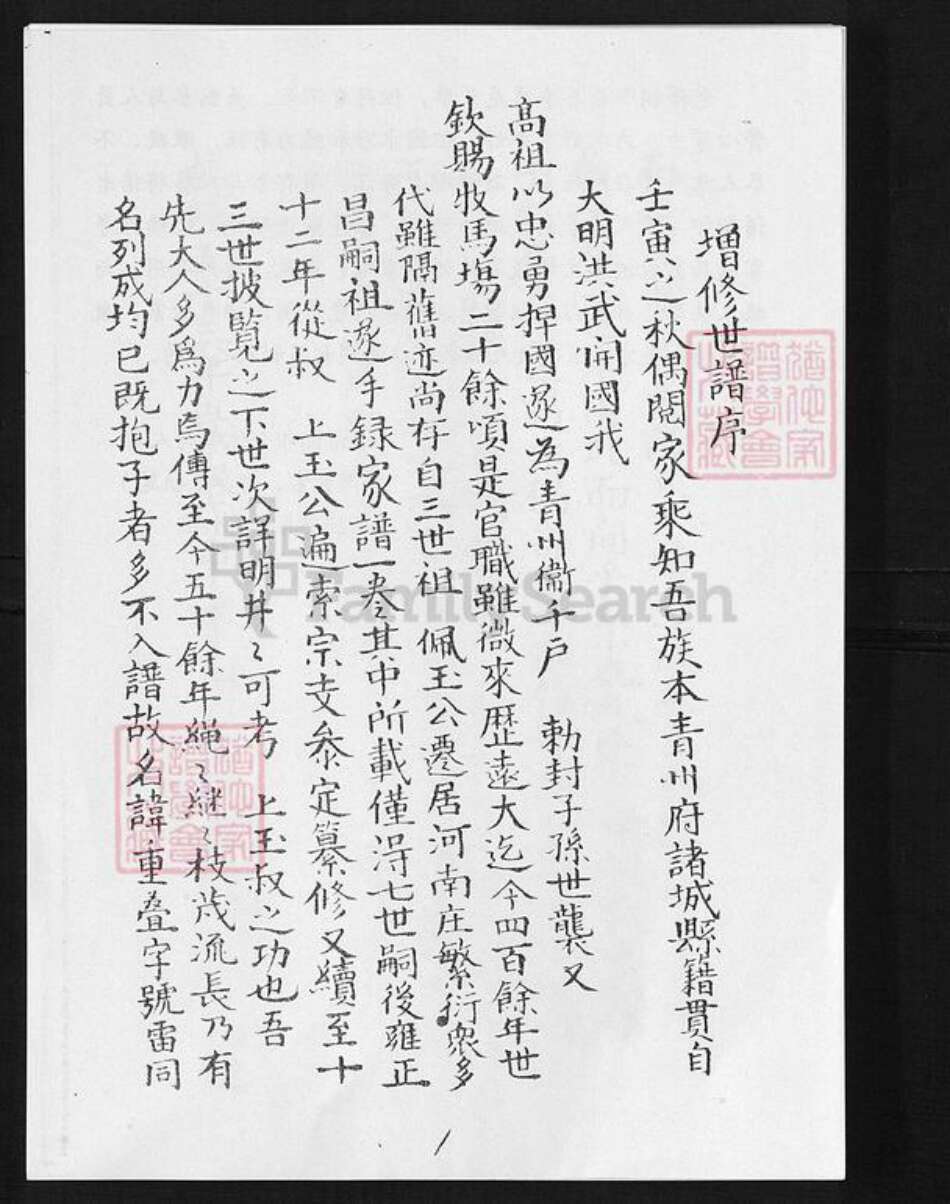 增修世譜序
壬寅之秋偶閱家乘知吾族本青州府諸城縣籍貫自
大明洪武開國我
高祖以忠勇捍國遂為青州衛千戶 勅封子孫世襲又
欽賜牧馬塲二十餘頃是官職雖微來歷遠大迄今四百餘年世
代雖隔舊迹尚存自三世祖 佩玉公遷居河南庄繁衍眾多
昌嗣祖遂手録家譜一卷其中所載僅淂七世嗣後雍正
十二年從叔 上玉公遍索宗支叅定纂修又續至十
三世披覽之下世次詳明井〻可考 上玉叔之功也吾
先大人多爲力焉傳至今五十餘年繩〻継〻枝茂流長乃有
名列成均已既抱子者多不入譜故名諱重叠字號雷同
1
FamilySearch